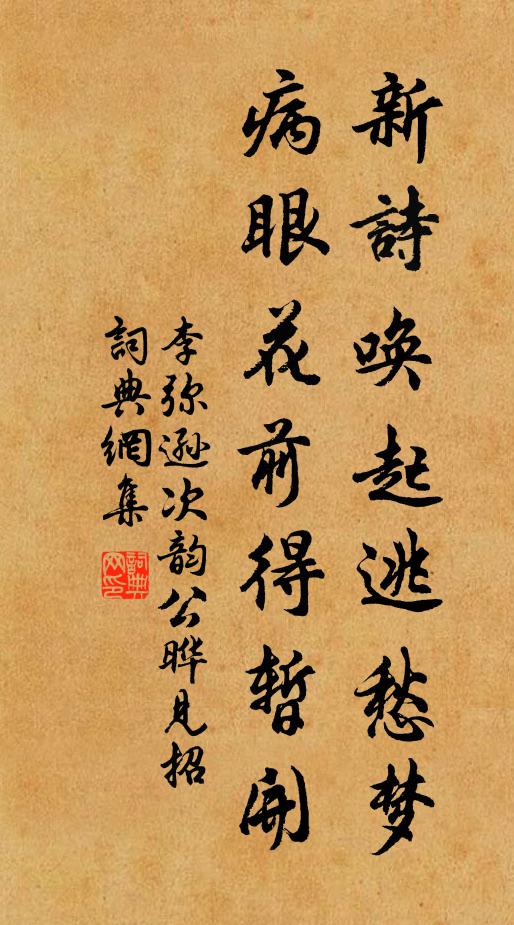 新詩唤起逃愁梦
病眼花前得暫開
李弥遜次韵公晔見招
詞典網集
詞典網印